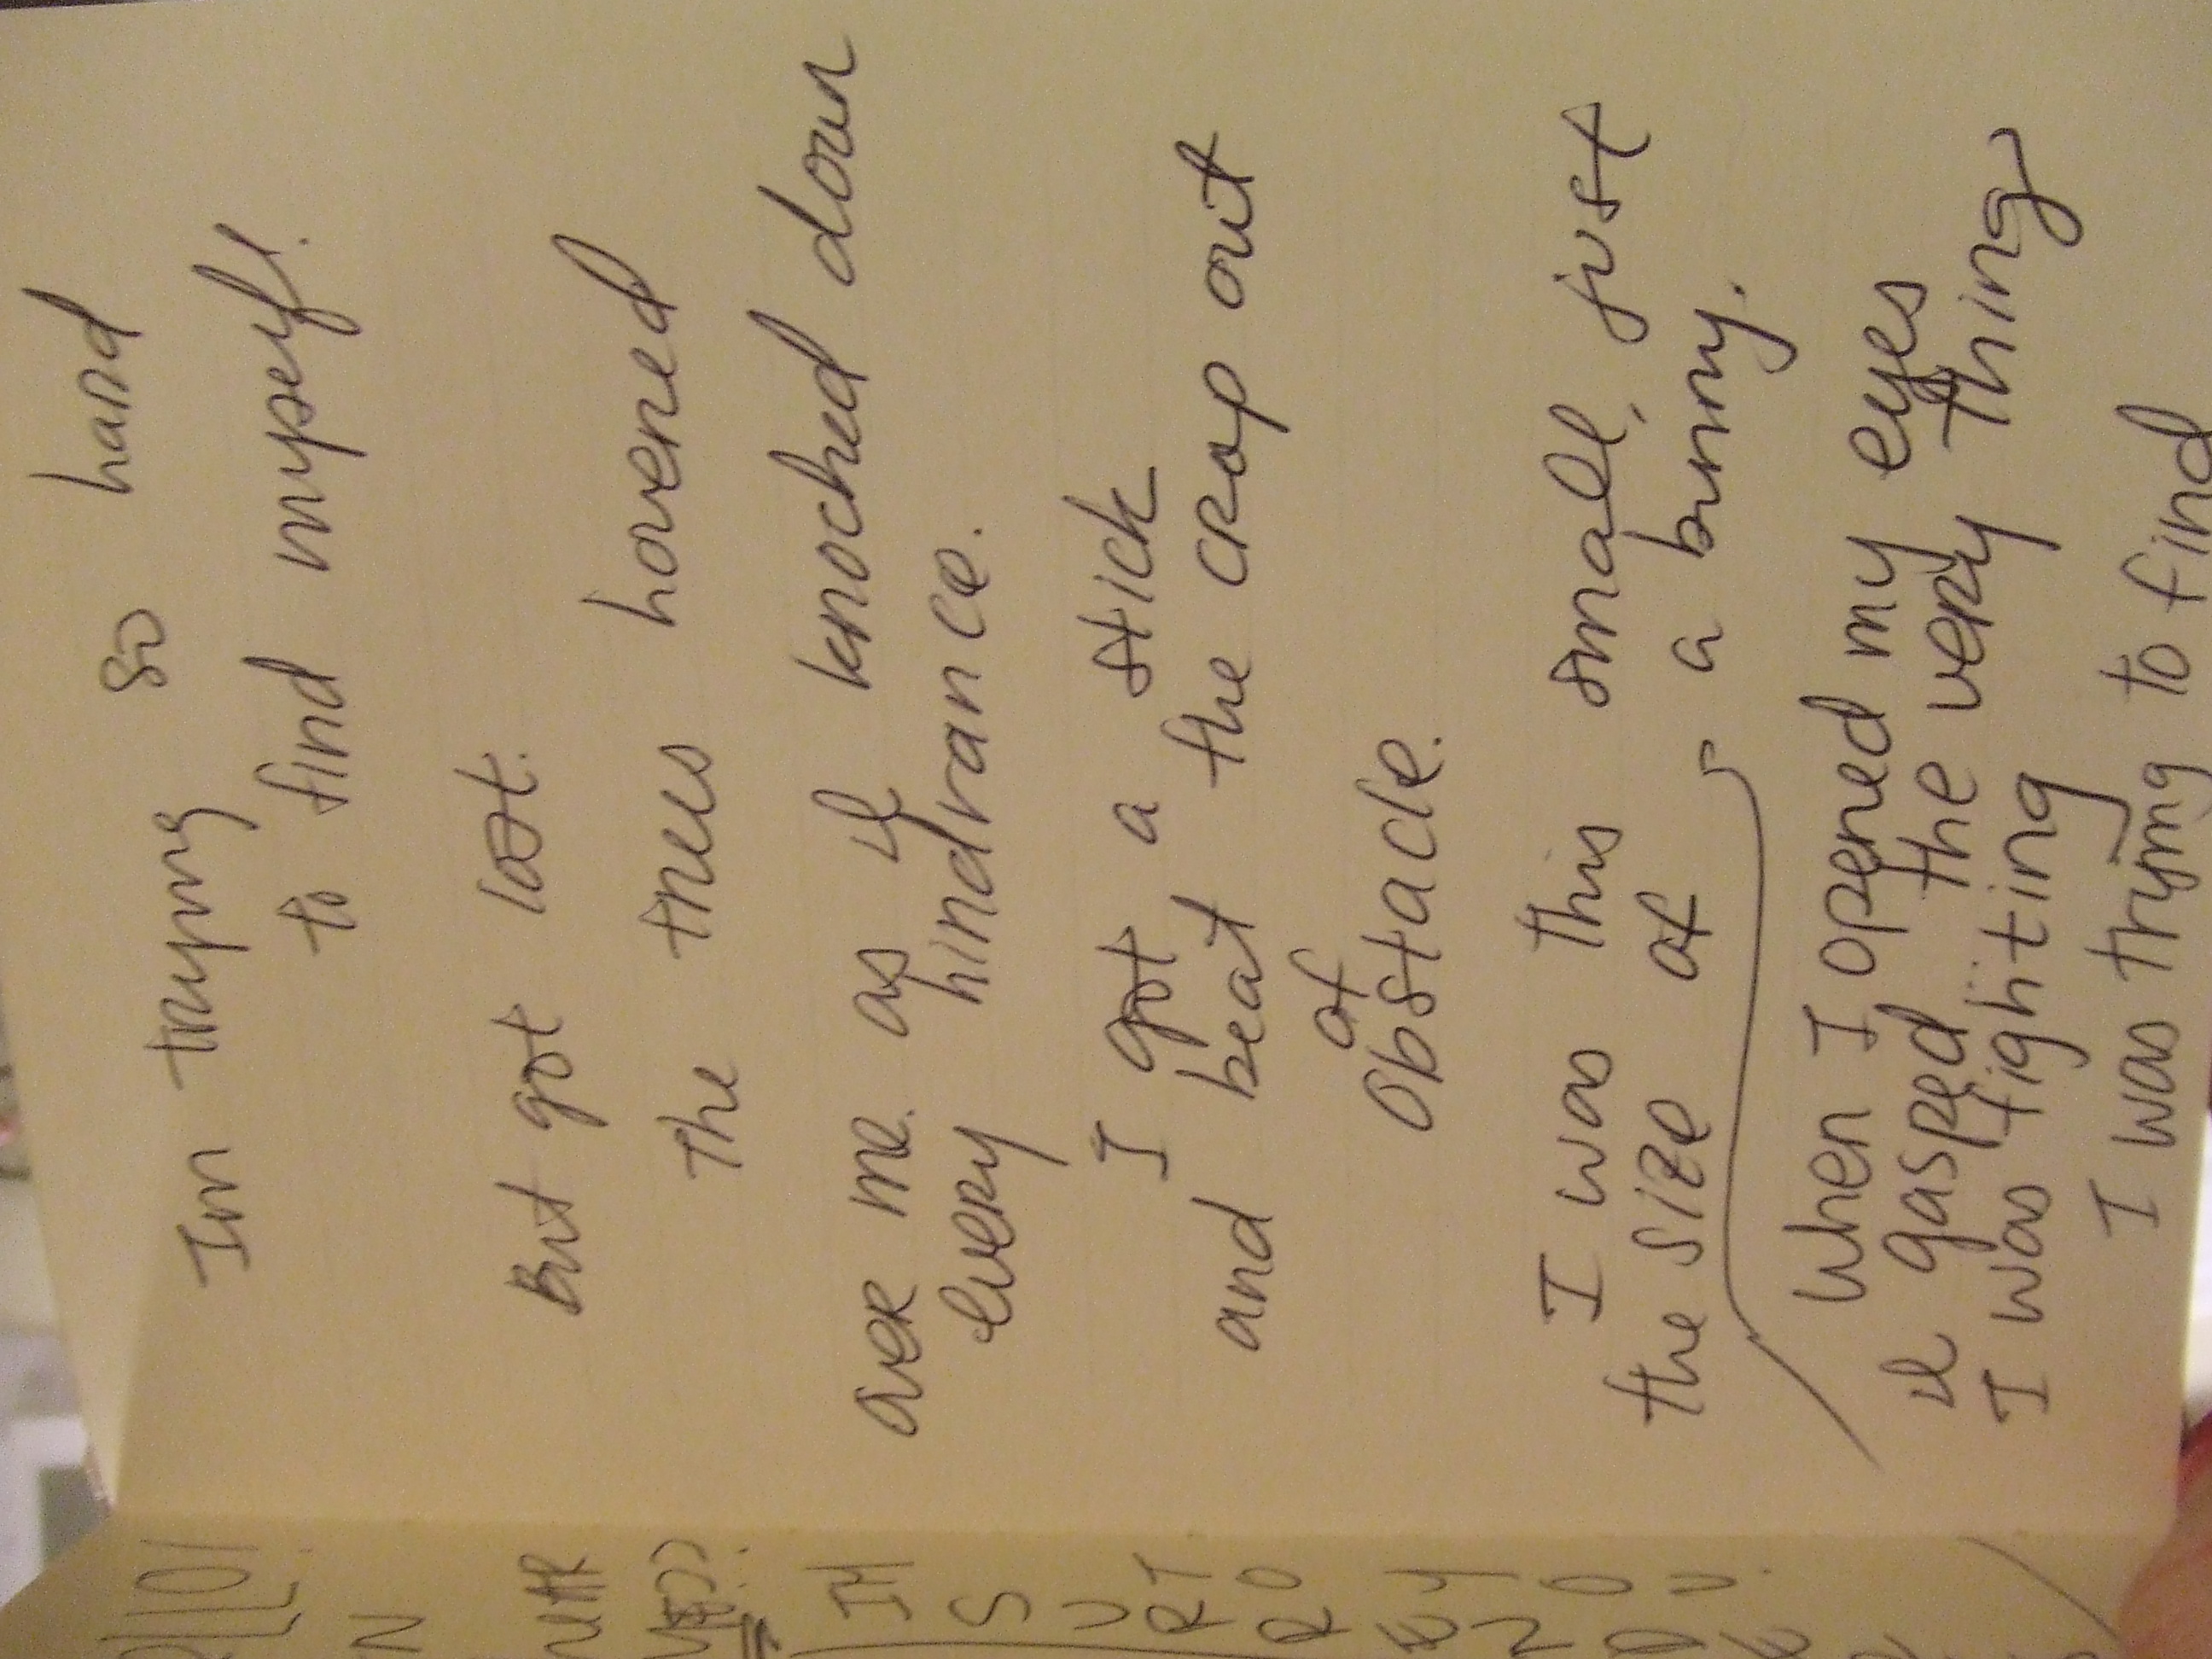 Im trying so hard
to find myself.
But got lost.
The trees hovered
over me. as il knocked down
every hindrance.
I got a stick
and beat the crap out
of
obstacle.
I was this small, just
the size of a bunny.
When I opened my eyes
il gasped the very thing
I was fighting
I was trying to find
IM
S
U